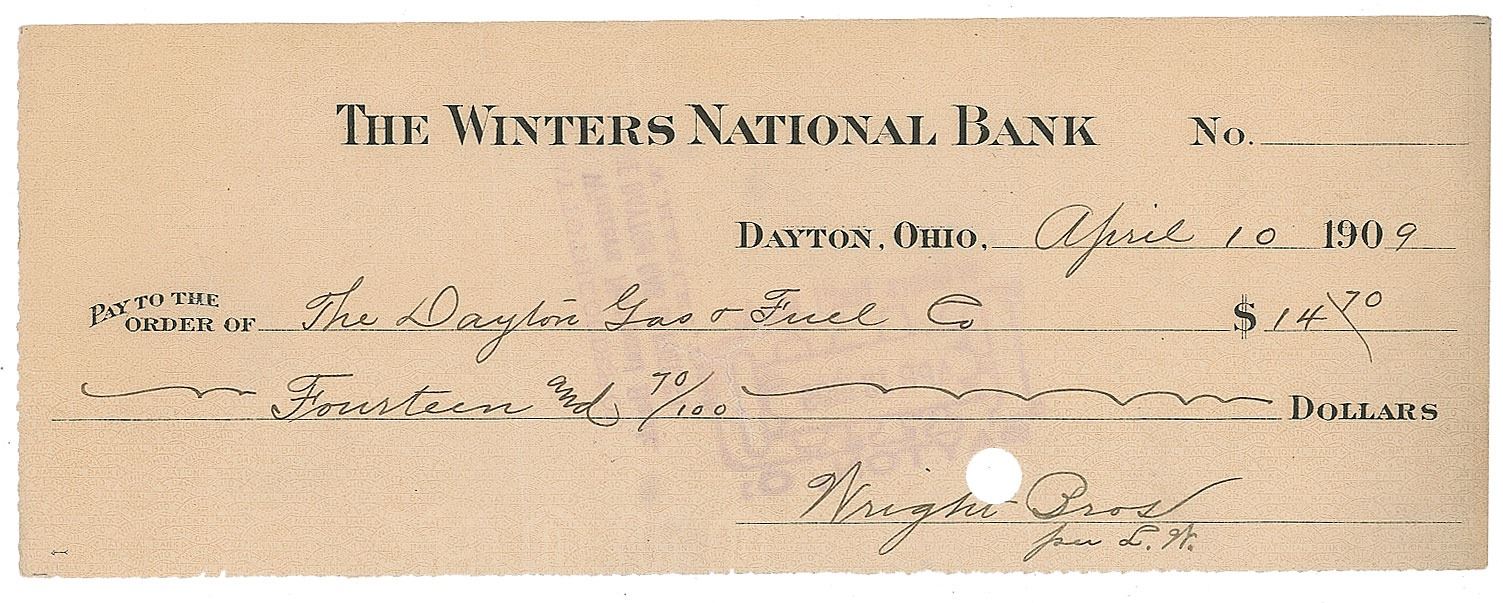 THE WINTERS NATIONAL BANK No.
DAYTON, OHIO, April 10 1909
PAY TO THE ORDER OF The Dayton Gas & Fuel Co $ 14 70
Fourteen and 70/100 DOLLARS
Wright Bros
per L. W.